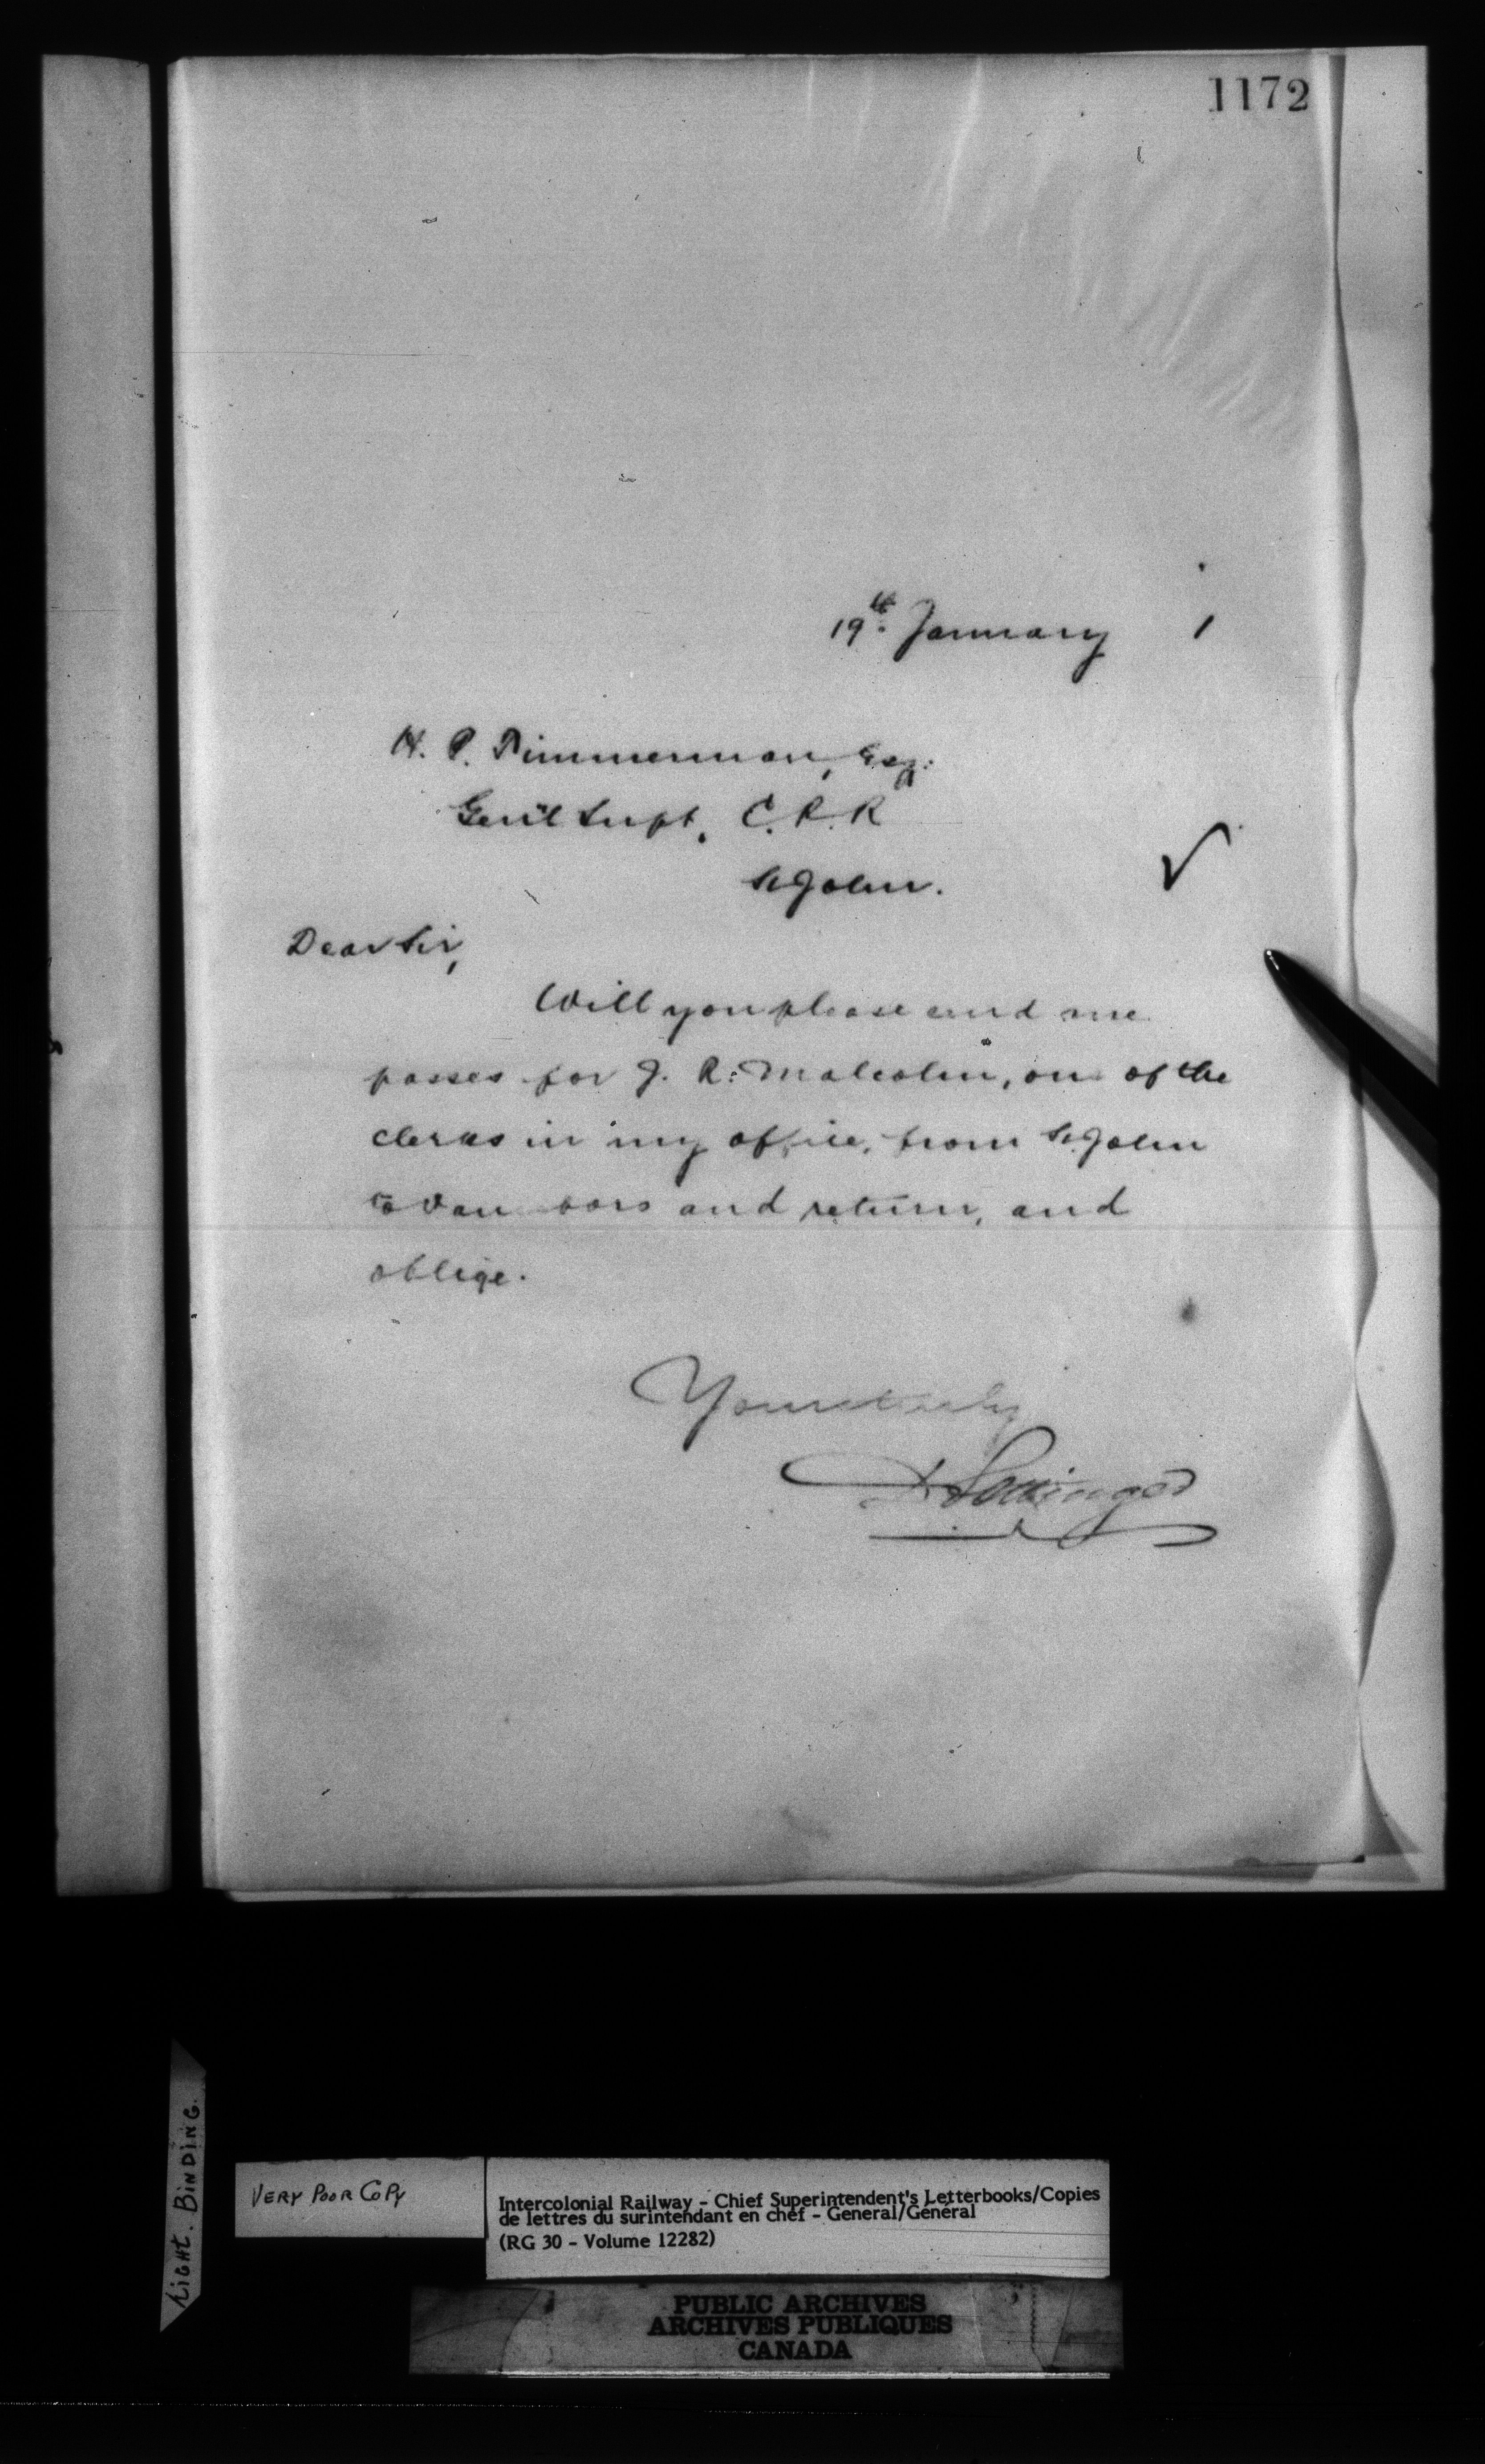 1172
19th January 1
H. P. Timmerman, Esq.
Gen'l Supt. C.P.R
St John.
Dear Sir,
Will you please send me
passes for J. R. Malcolm, one of the
clerks in my office, from St. John
to and return, and
oblige.
Yours truly
D Pottinger
LIGHT. BINDING.
VERY POOR COPY
Intercolonial Railway - Chief Superintendent's Letterbooks/Copies
de lettres du surintendant en chef - General/Général
(RG 30 - Volume 12282)
PUBLIC ARCHIVES
ARCHIVES PUBLIQUES
CANADA